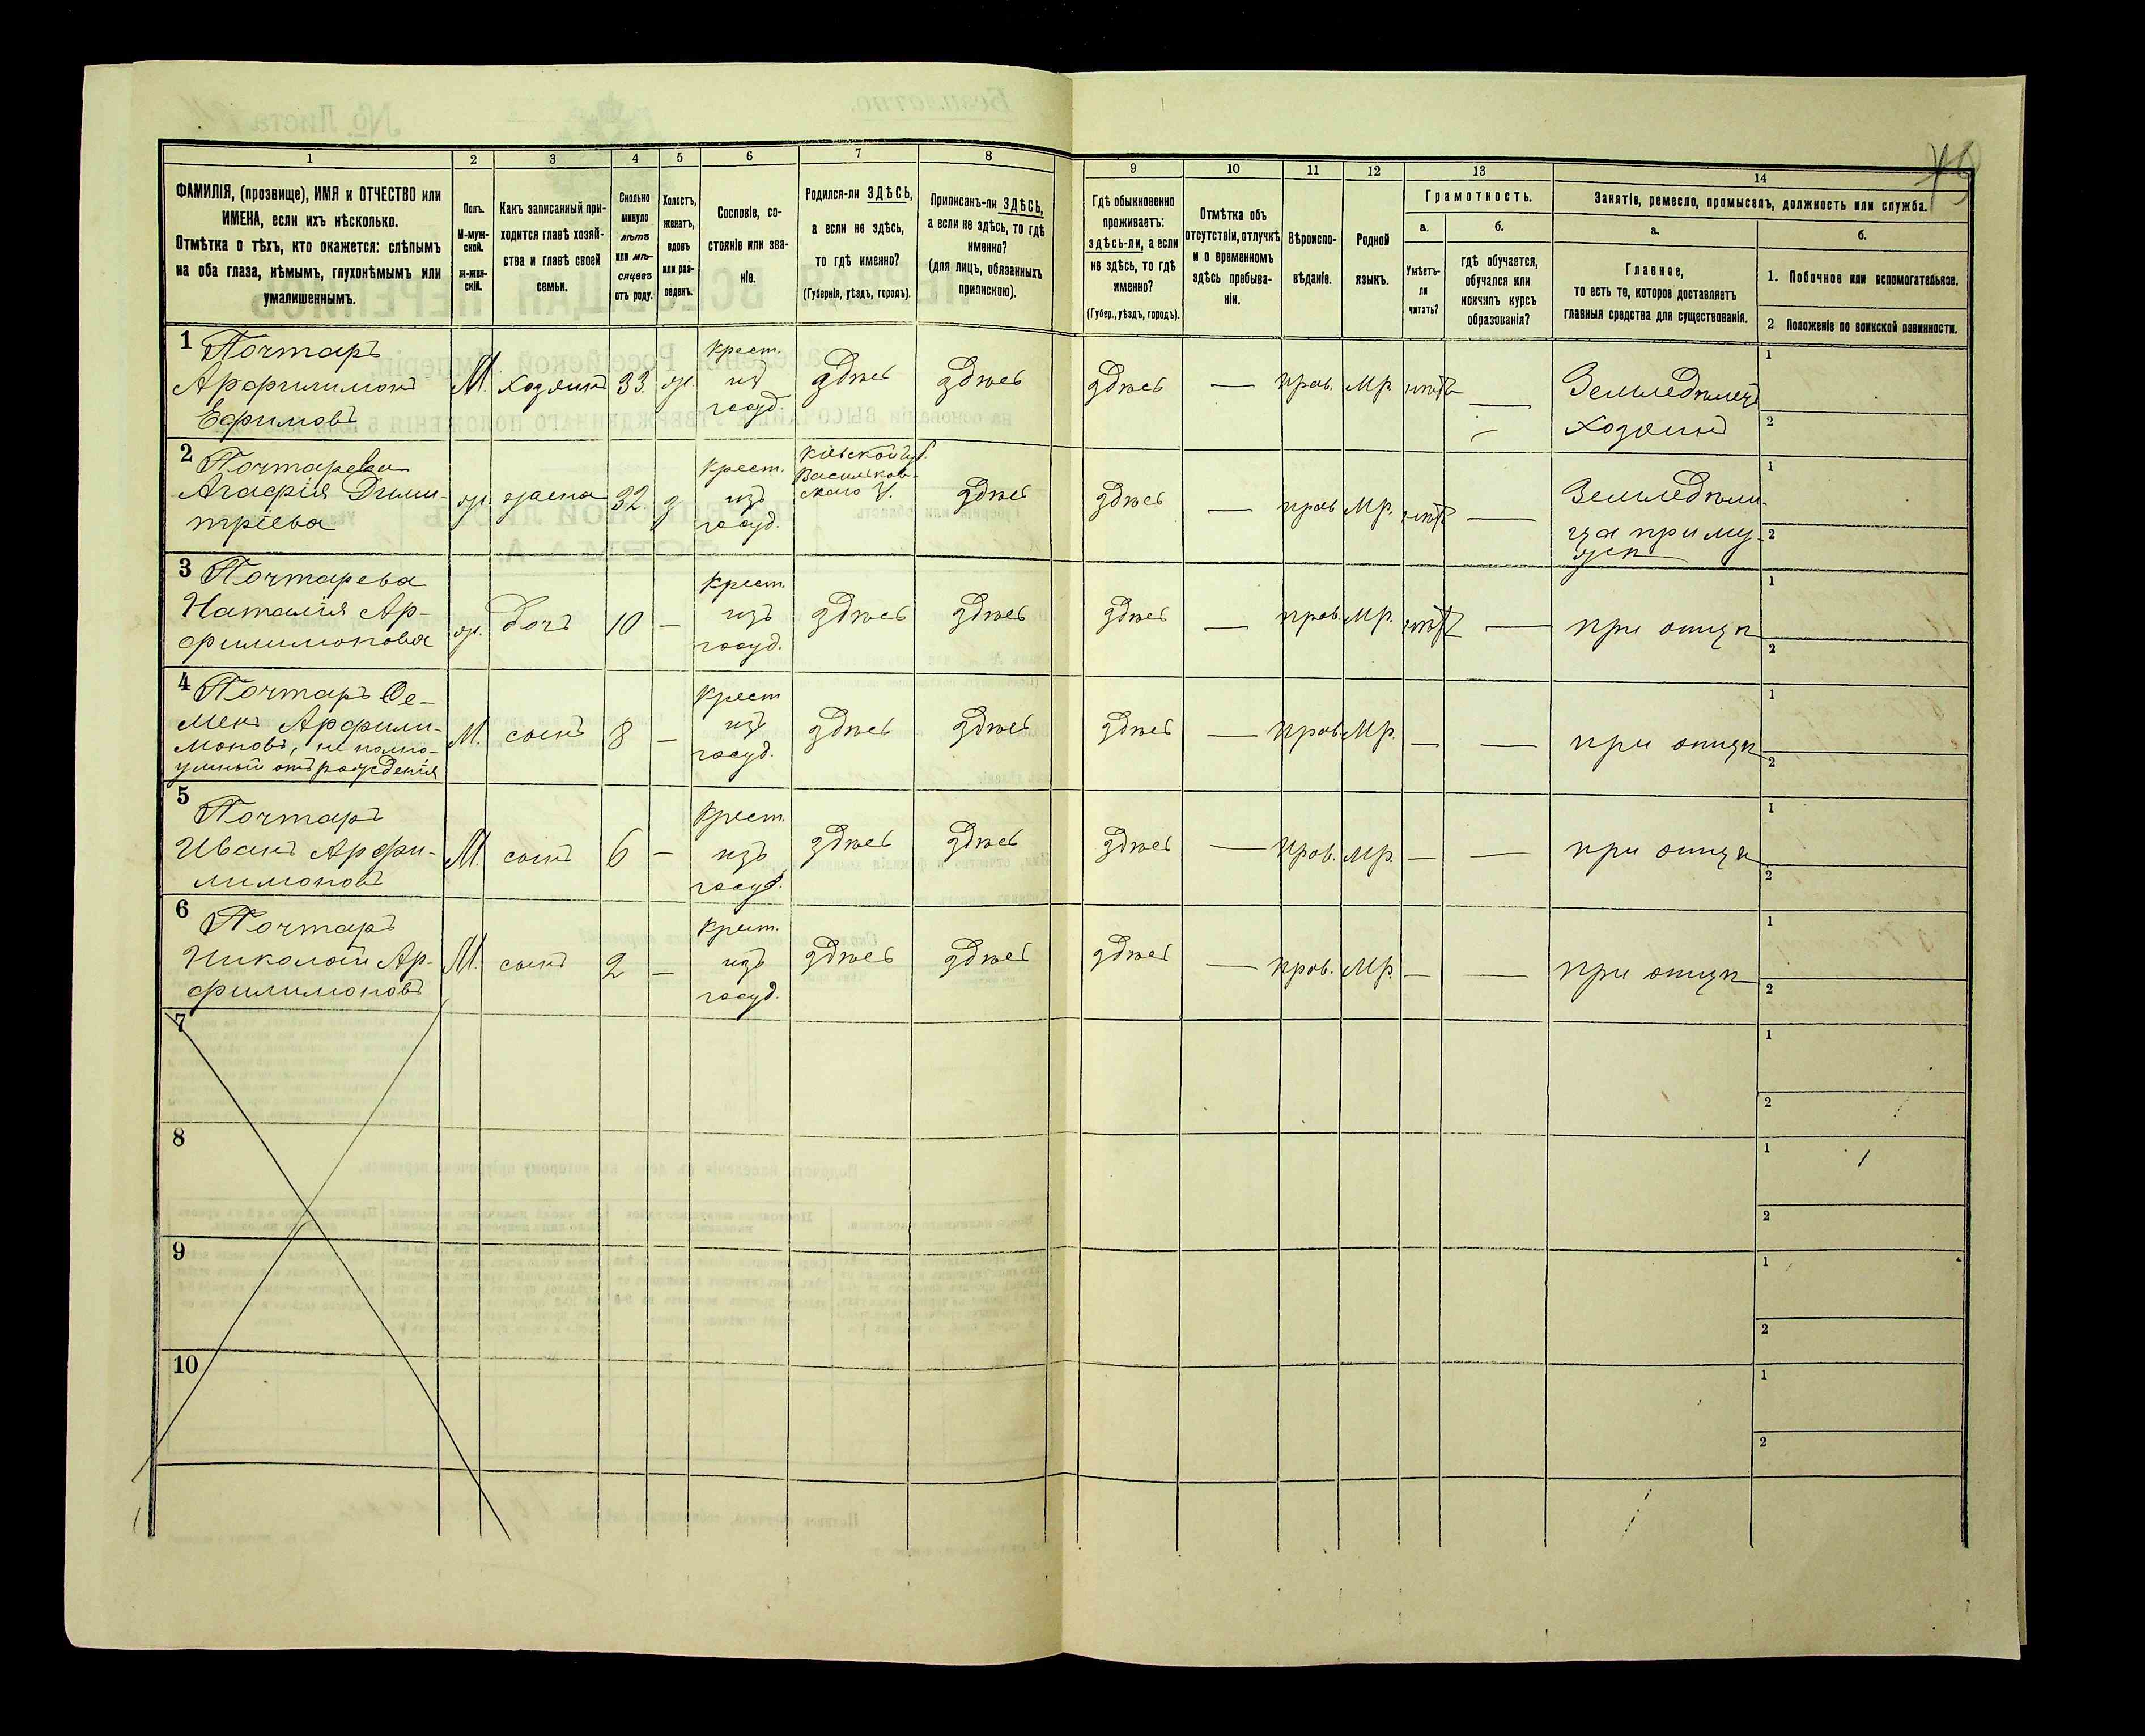 1 2 3 4 5 6 7 8 9 10 11 12 13 14
ФАМИЛІЯ, (прозвище), ИМЯ и ОТЧЕСТВО или
ИМЕНА, если ихъ нѣсколько.
Отмѣтка о тѣхъ, кто окажется: слѣпымъ
на оба глаза, нѣмымъ, глухонѣмымъ или
умалишеннымъ.
Полъ.
М-муж-
ской.
Ж-жен-
скій.
Какъ записанный при-
ходится главѣ хозяй-
ства и главѣ своей
семьи.
Сколько
минуло
лѣтъ
или мѣ-
сяцевъ
отъ роду.
Холостъ,
женатъ,
вдовъ
или раз-
веденъ.
Сословіе, со-
стояніе или зва-
ніе.
Родился-ли ЗДѢСЬ,
а если не здѣсь,
то гдѣ именно?
(Губернія, уѣздъ, городъ).
Приписанъ-ли ЗДѢСЬ,
а если не здѣсь, то гдѣ
именно?
(для лицъ, обязанныхъ
припискою).
Гдѣ обыкновенно
проживаетъ:
здѣсь-ли, а если
не здѣсь, то гдѣ
именно?
(Губер., уѣздъ, городъ).
Отмѣтка объ
отсутствіи, отлучкѣ
и о временномъ
здѣсь пребыва-
ніи.
Вѣроиспо-
вѣданіе.
Родной
языкъ.
Грамотность.
а.
Умѣетъ-
ли
читать?
б.
гдѣ обучается,
обучался или
кончилъ курсъ
образованія?
Занятіе, ремесло, промыселъ, должность или служба.
а.
Главное,
то есть то, которое доставляетъ
главныя средства для существованія.
б.
1. Побочное или вспомогательное.
2 Положеніе по воинской повинности.
1 Почтарь
Арфилимонъ
Ефимовъ
М. хозяинъ 33. ж.
крест.
изъ
госуд.
здѣсь здѣсь здѣсь — прав. Мр. нѣтъ —
Земледѣлецъ
хозяинъ
1
2
2 Почтарева
Агафія Дими-
тріева
ж. жена 32. з
крест.
изъ
госуд.
Кіевской губ.
Васильков-
скаго У.
здѣсь здѣсь — прав Мр. нѣтъ —
Земледѣли-
ца при му-
жѣ
1
2
3 Почтарева
Наталія Ар-
филимонова
ж. дочь 10 —
крест.
изъ
госуд.
здѣсь здѣсь здѣсь — прав. Мр. нѣтъ — при отцѣ
1
2
4 Почтарь Се-
менъ Арфили-
моновъ, не полно-
умный отъ рожденія
М. сынъ 8 —
крест
изъ
госуд.
здѣсь здѣсь здѣсь — прав. Мр. — — при отцѣ
1
2
5 Почтарь
Иванъ Арфи-
лимоновъ
М. сынъ 6 —
крест.
изъ
госуд.
здѣсь здѣсь здѣсь — прав. Мр. — — при отцѣ
1
2
6 Почтарь
Николай Ар-
филимоновъ
М. сынъ 2 —
крест.
изъ
госуд.
здѣсь здѣсь здѣсь — прав. Мр. — — при отцѣ
1
2
7
1
2
8
1
2
9
1
2
10
1
2